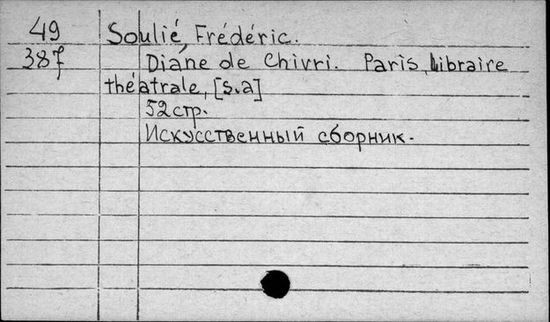 49 Soulié, Frédéric.
387 Diane de Chivri. Paris, Libraire
théatrale, [s.a]
52 стр.
Искусственный сборник.